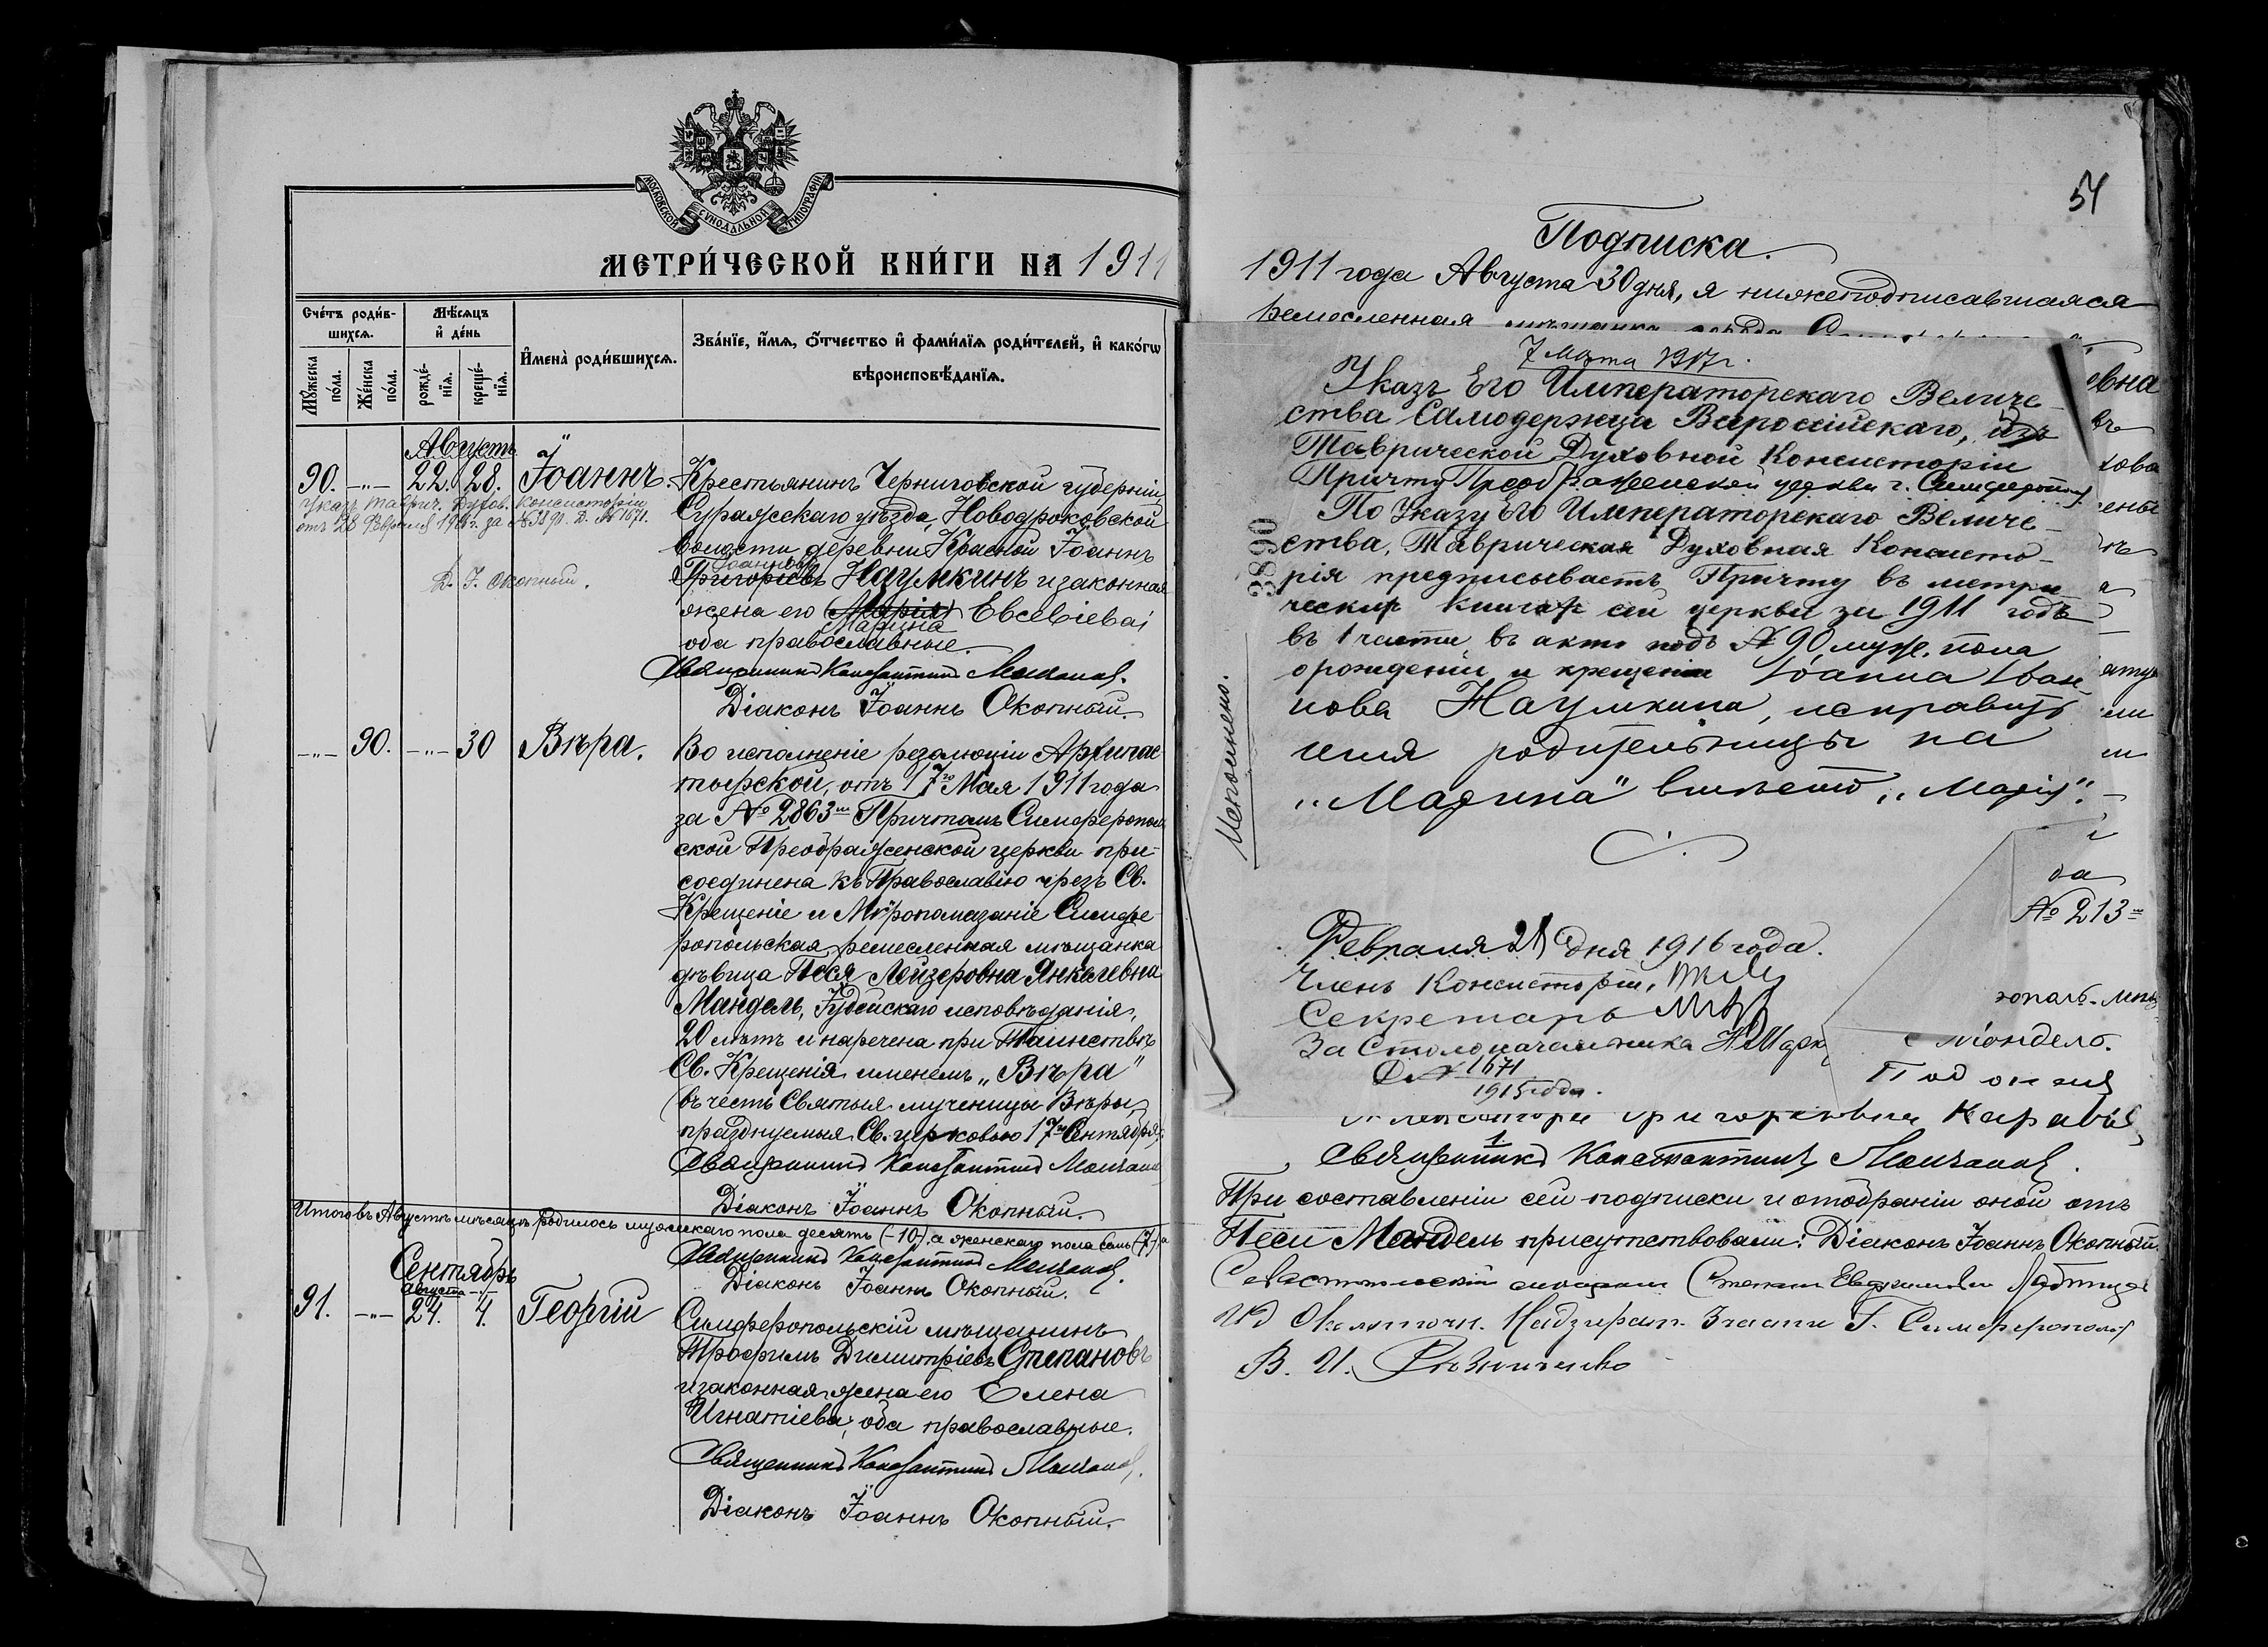 МОСКОВСКОЙ СѴНОДАЛЬНОЙ ТИПОГРАФІИ
МЕТРИ́ЧЕСКОЙ КНИ́ГИ НА 1911
Сче́тъ роди́в-
шихся.
Мѣ́сяцъ
и҆ де́нь
Мꙋ́жеска
по́ла.
Же́нска
по́ла.
рожде́-
нїя.
креще́-
нїя.
И҆мена̀ роди́вшихся.
Зва́нїе, и҆́мя, ѻ҆́тчество и҆ фами́лїя роди́телей, и҆ како́гѡ
вѣроисповѣ́данїя.
Августъ
90. —"— 22. 28. Іоаннъ.
Указ Таврич. Духов. Консисторіи
отъ 28 Февраля 1916г. за № 3890. Д. № 1671.
Д. І. Окопный.
Крестьянинъ Черниговской губерніи
Суражскаго уѣзда, Новодроковской
волости, деревни Красной Іоаннъ
Іоанновъ
Григорьевъ Наумкинъ и законная
жена его (Марія) Евсевіева;
Марина
оба православные.
Священникъ Константинъ
Діаконъ Іоаннъ Окопный.
—"— 90. —"— 30 Вѣра.
Во исполненіе резолюціи Архипас-
тырской, отъ 17го Мая 1911 года
за № 2863мъ Причтомъ Симферополь
ской Преображенской церкви при-
соединена къ Православію чрезъ Св.
Крещеніе и Мѵропомазаніе Симфе-
ропольская ремесленная мѣщанка
дѣвица Песя Лейзеровна Янкелевна
Мандель, Іудейскаго исповѣданія,
20 лѣтъ и наречена при Таинствѣ
Св. Крещенія именемъ „Вѣра"
(въ честь Святыя мученицы Вѣры,
празднуемыя Св. церковью 17го Сентября)
Священникъ Константинъ
Діаконъ Іоаннъ Окопный.
Итого въ Августѣ мѣсяцѣ родилось мужескаго пола десять (-10-), а женскаго пола семь (7)
Священникъ Константинъ
Діаконъ Іоаннъ Окопный.
Сентябрь
августа
91. —"— 24. 4. Георгій
Симферопольскій мѣщанинъ
Трофимъ Димитріевъ Степановъ
и законная жена его Елена
Игнатіева; оба православные.
Священникъ Константинъ
Діаконъ Іоаннъ Окопный.
54
Подписка.
1911 года Августа 30 дня, я нижеподписавшаяся
ремесленная мѣщанка города
7 Марта 1917г.
Указъ Его Императорскаго Величе-
ства Самодержца Всероссійскаго, изъ
Таврической Духовной Консисторіи
Причту Преображенской церкви г. Симферополя
По Указу Его Императорскаго Величе-
ства, Таврическая Духовная Консисто-
рія предписываетъ Причту въ метри-
ческихъ книгахъ сей церкви за 1911 годъ
въ 1 части, въ актѣ подъ № 90, муж. пола
о рожденіи и крещеніи Іоанна Іоан-
нова Наумкина, исправить
имя родительницы на
„Марина" вмѣсто „Марія".
3890
Исполнено.
Февраля 28 дня 1916 года.
Членъ Консисторіи,
Секретарь
За Столоначальника
Д. № 1671
1915 года.
да
№ 213
Карабья
Священникъ Константинъ
При составленіи сей подписки и отобраніи оной отъ
Песи Мандель присутствовали: Діаконъ Іоаннъ Окопный.
Надзират. 3 части Г. Симферополя
В. И.